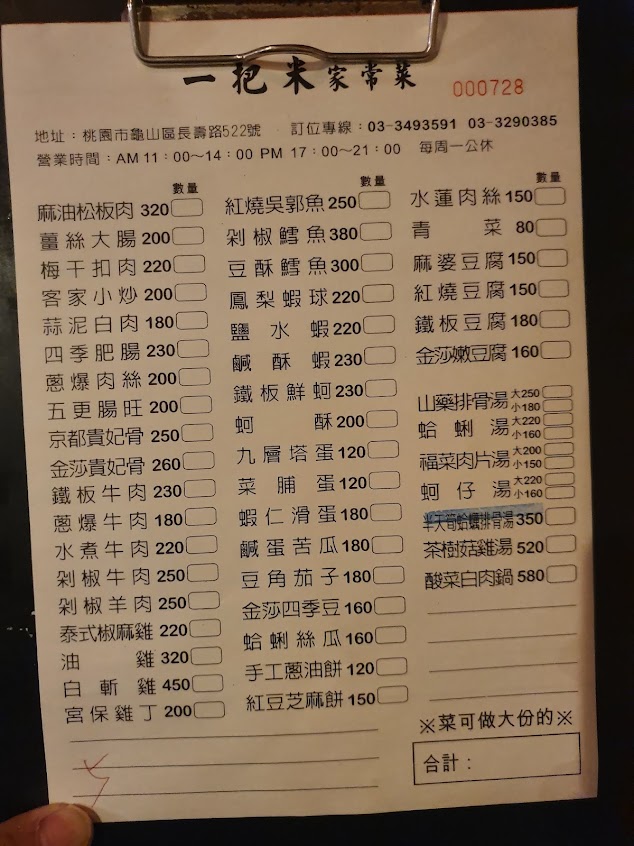 一把米家常菜
000728
地址：桃園市龜山區長壽路522號 訂位專線：03-3493591 03-3290385
營業時間：AM 11：00～14：00 PM 17：00～21：00 每周一公休
數量
麻油松板肉 320
薑絲大腸 200
梅干扣肉 220
客家小炒 200
蒜泥白肉 180
四季肥腸 230
蔥爆肉絲 200
五更腸旺 200
京都貴妃骨 250
金莎貴妃骨 260
鐵板牛肉 230
蔥爆牛肉 180
水煮牛肉 220
剁椒牛肉 250
剁椒羊肉 250
泰式椒麻雞 220
油雞 320
白斬雞 450
宮保雞丁 200
數量
紅燒吳郭魚 250
剁椒鱈魚 380
豆酥鱈魚 300
鳳梨蝦球 220
鹽水蝦 220
鹹酥蝦 230
鐵板鮮蚵 230
蚵酥 200
九層塔蛋 120
菜脯蛋 120
蝦仁滑蛋 180
鹹蛋苦瓜 180
豆角茄子 180
金莎四季豆 160
蛤蜊絲瓜 160
手工蔥油餅 120
紅豆芝麻餅 150
數量
水蓮肉絲 150
青菜 80
麻婆豆腐 150
紅燒豆腐 150
鐵板豆腐 180
金莎嫩豆腐 160
山藥排骨湯 大250 小180
蛤蜊湯 大220 小160
福菜肉片湯 大200 小150
蚵仔湯 大220 小160
半天筍蛤蠣排骨湯 350
茶樹菇雞湯 520
酸菜白肉鍋 580
※菜可做大份的※
合計：